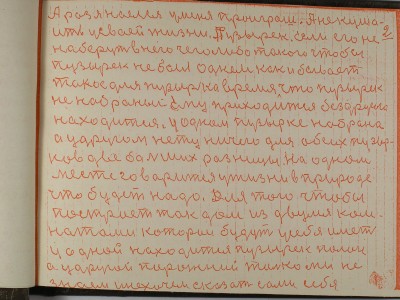 А раз я на ем я у меня проиграш. А не кушать
ить ... вай жизни. Пузырек, если его не
наберут в него чего либо такого чтобы
пузырек не был один как и бывает
такое для пузырька время, что пузырек
не набраной ему приходится без друга
находится, у одном пузырке набрана
а у другом нету ничего для обеих пузыр
ков две больших разницы. На одном
месте говорится у жизни в природе
что будет надо. Для того чтобы
построет так дом из двумя ком
натами которой будут у себя имет
у одной находится пузырек полон
а у другой порожний только ми не
знаем и не хочем сказать сами себя